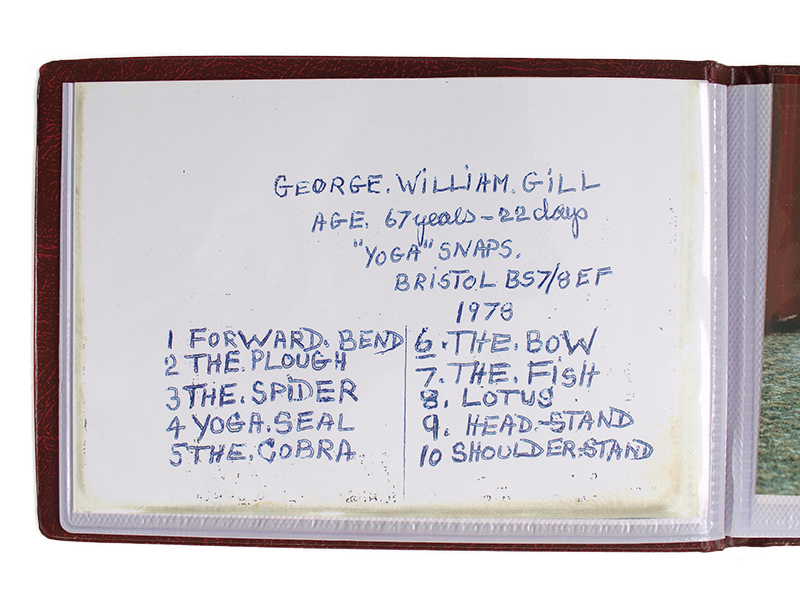 GEORGE. WILLIAM. GILL
AGE. 67 years - 22 days
"YOGA" SNAPS.
BRISTOL BS7/8EF
1978
1 FORWARD. BEND
2 THE. PLOUGH
3 THE. SPIDER
4 YOGA. SEAL
5 THE. COBRA
6. THE. BOW
7. THE. FISH
8. LOTUS
9. HEAD.-STAND
10 SHOULDER-STAND